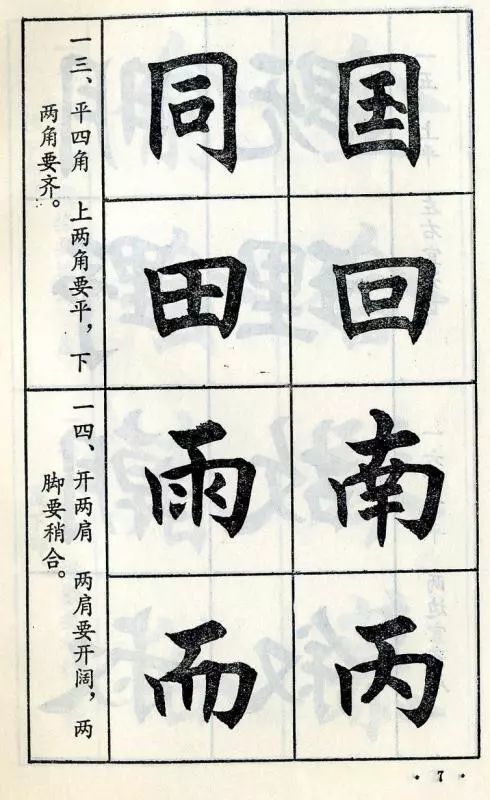 国回
同田
一三、平四角 上两角要平，下
两角要齐。
南丙
雨而
一四、开两肩 两肩要开阔，两
脚要稍合。
·7·